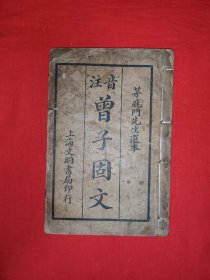 茅鹿門先生選本
音注
曾子固文
上海文明書局印行